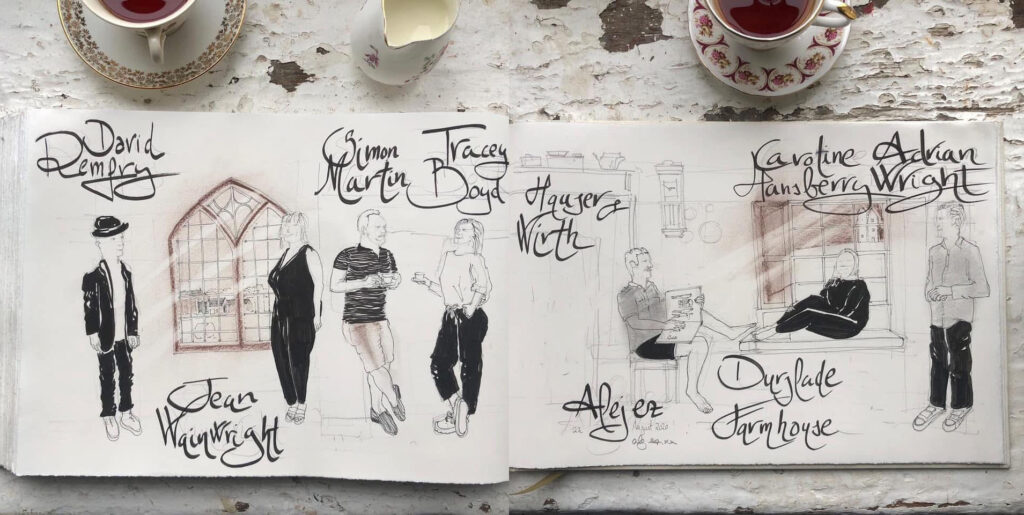 David
Remfry
Simon
Martin
Tracey
Boyd
Jean
Wainwright
Hauser &
Wirth
Caroline
Hansberry
Adrian
Wright
Alej ez
August 2020
Durslade
Farmhouse